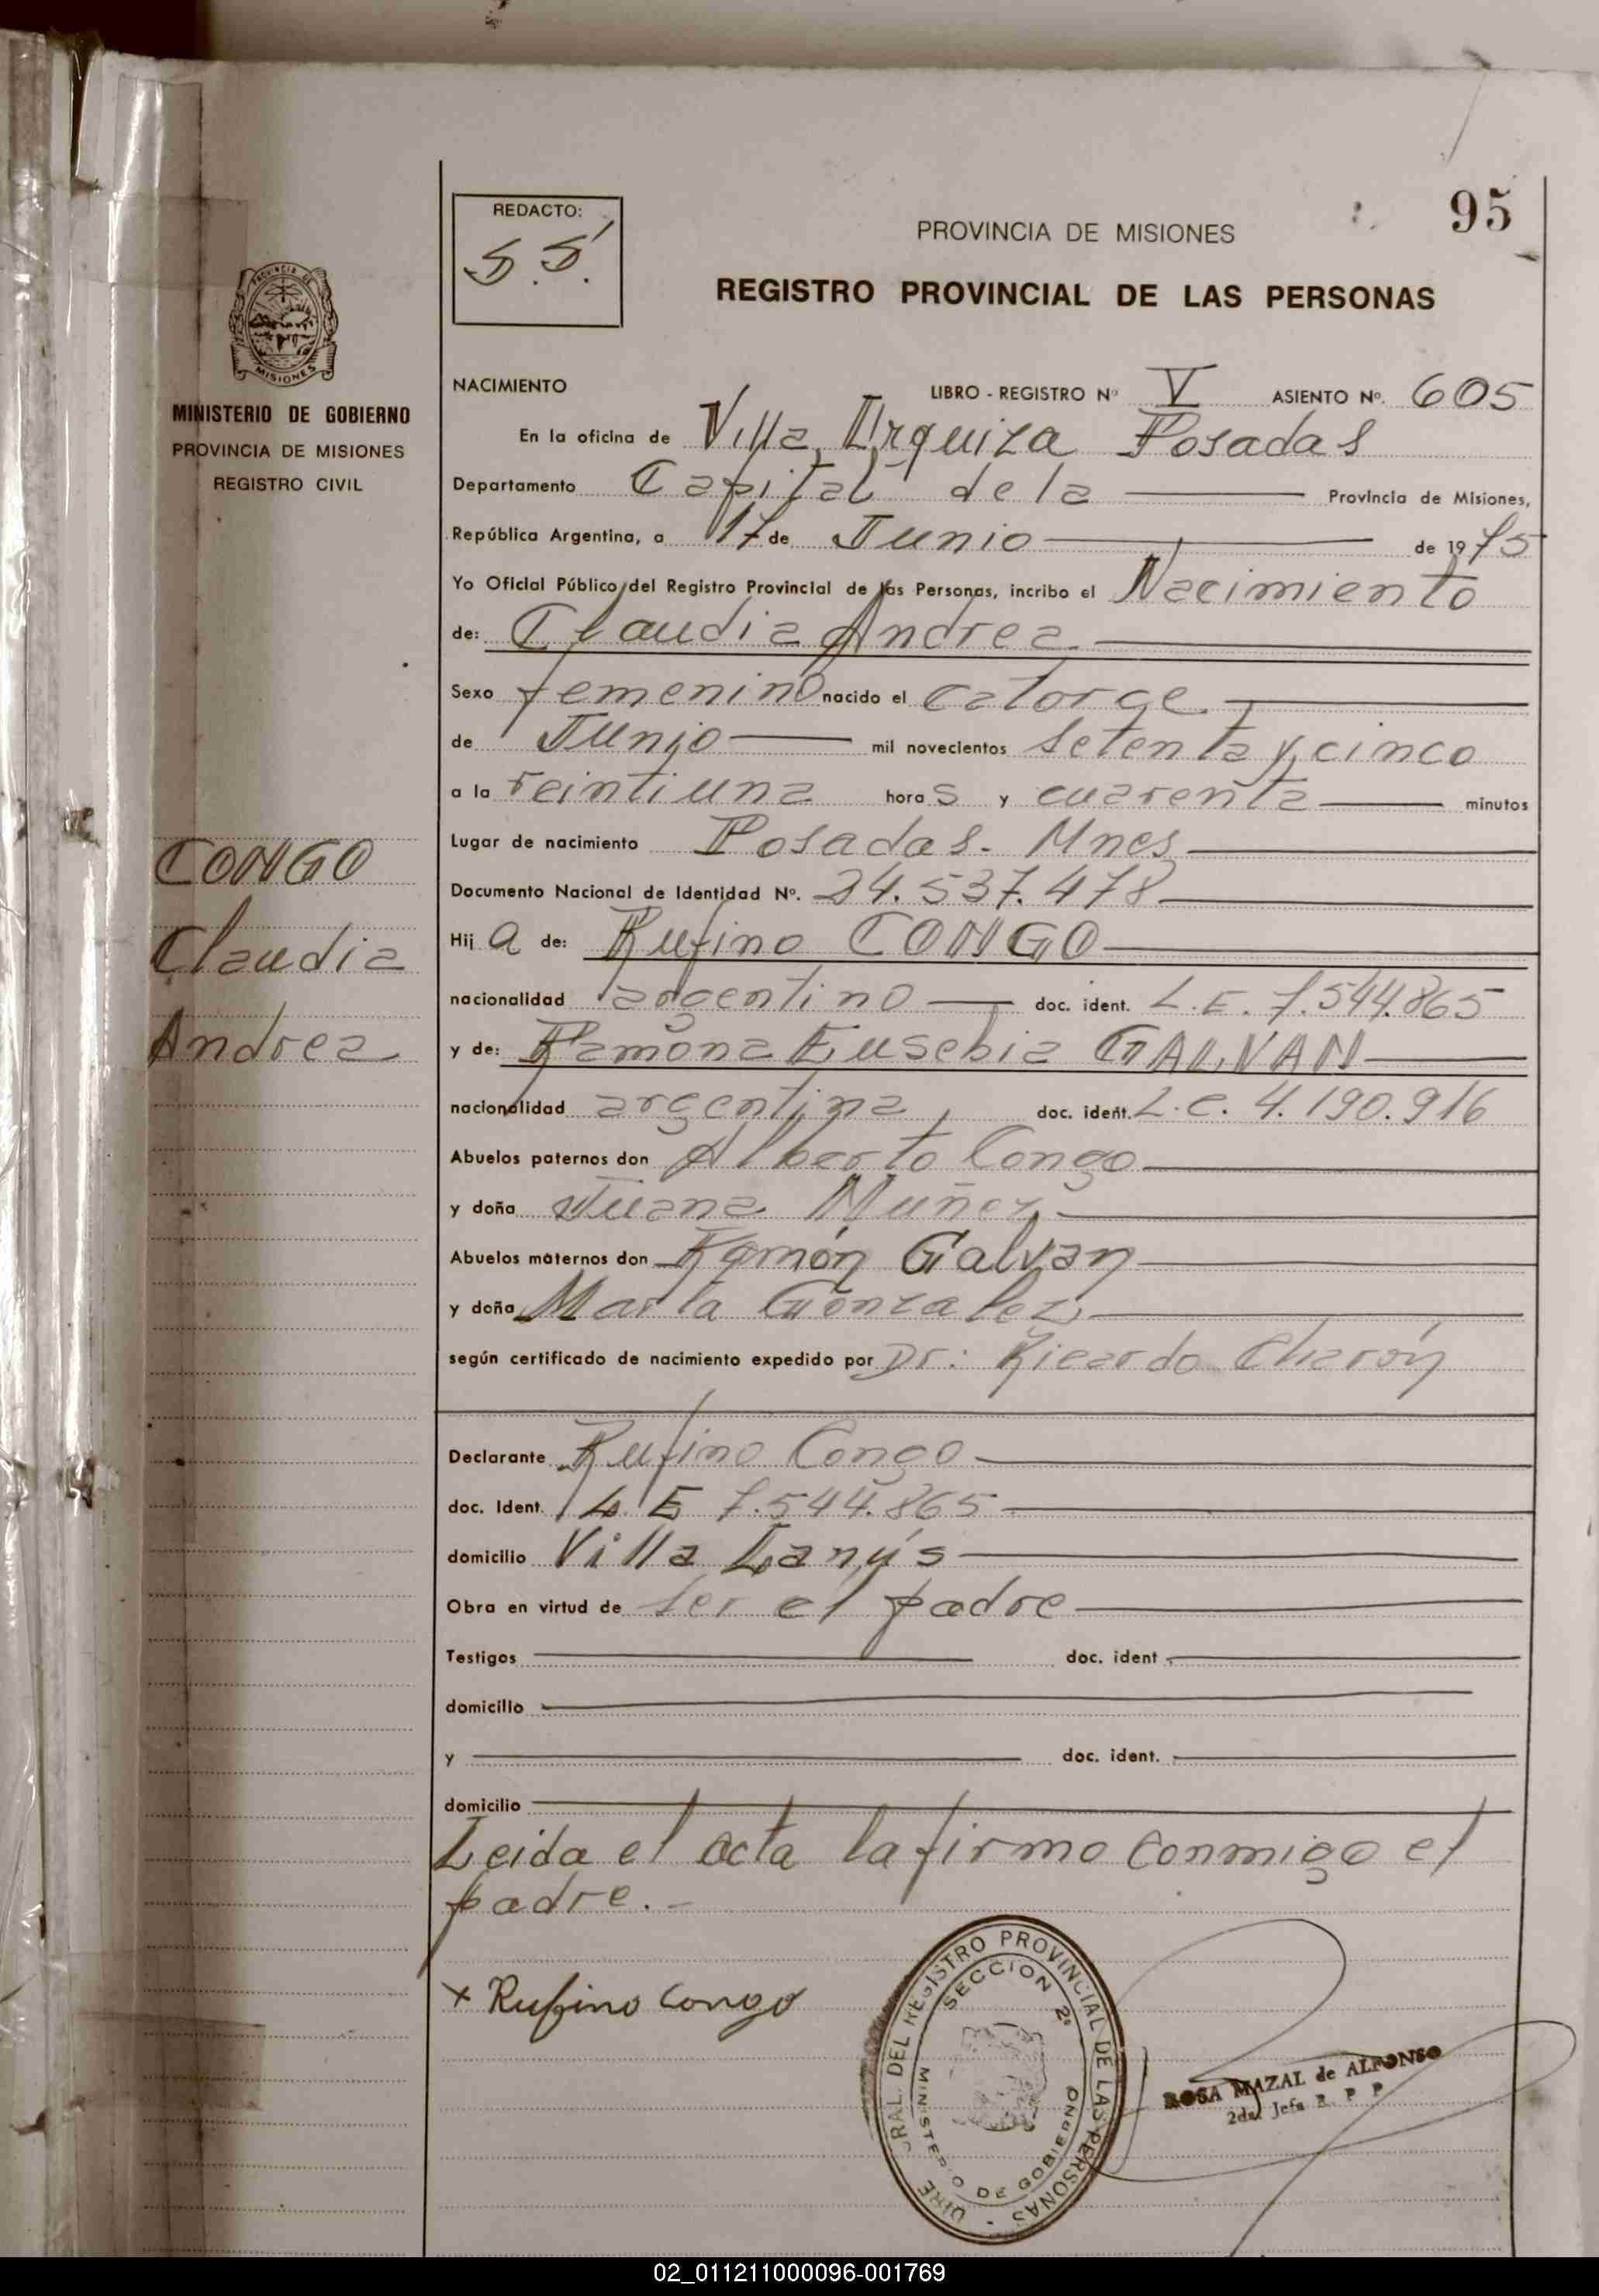 95
REDACTO:
S. S.
PROVINCIA DE MISIONES
REGISTRO PROVINCIAL DE LAS PERSONAS
PROVINCIA DE
MISIONES
MINISTERIO DE GOBIERNO
PROVINCIA DE MISIONES
REGISTRO CIVIL
CONGO
Claudia
Andrea
NACIMIENTO LIBRO - REGISTRO Nº V ASIENTO Nº. 605
En la oficina de Villa Urquiza Posadas
Departamento Capital de la Provincia de Misiones,
República Argentina, a 17 de Junio de 1975
Yo Oficial Público del Registro Provincial de las Personas, incribo el Nacimiento
de: Claudia Andrea
Sexo femenino nacido el catorce
de Junio mil novecientos setenta y cinco
a la veintiuna horas y cuarenta minutos
Lugar de nacimiento Posadas. Mnes
Documento Nacional de Identidad Nº. 24.537.478
Hija de: Rufino CONGO
nacionalidad argentino doc. ident. L.E. 7.544.865
y de: Ramona Eusebia GALVAN
nacionalidad argentina, doc. ident. L.C. 4.190.916
Abuelos paternos don Alberto Congo
y doña Juana Nuñez
Abuelos maternos don Ramón Galvan
y doña María Gonzalez
según certificado de nacimiento expedido por Dr: Ricardo Charón
Declarante Rufino Congo
doc. Ident. L. E 7.544.865
domicilio Villa Lanús
Obra en virtud de ser el padre
Testigos doc. ident.
domicilio
y doc. ident.
domicilio
Leida el acta la firmo conmigo el
padre.-
x Rufino Congo
DIRE GRAL. DEL REGISTRO PROVINCIAL DE LAS PERSONAS -
SECCION 2º
MINISTERIO DE GOBIERNO
ROSA MAZAL de ALFONSO
2da. Jefa R. P. P.
02_011211000096-001769